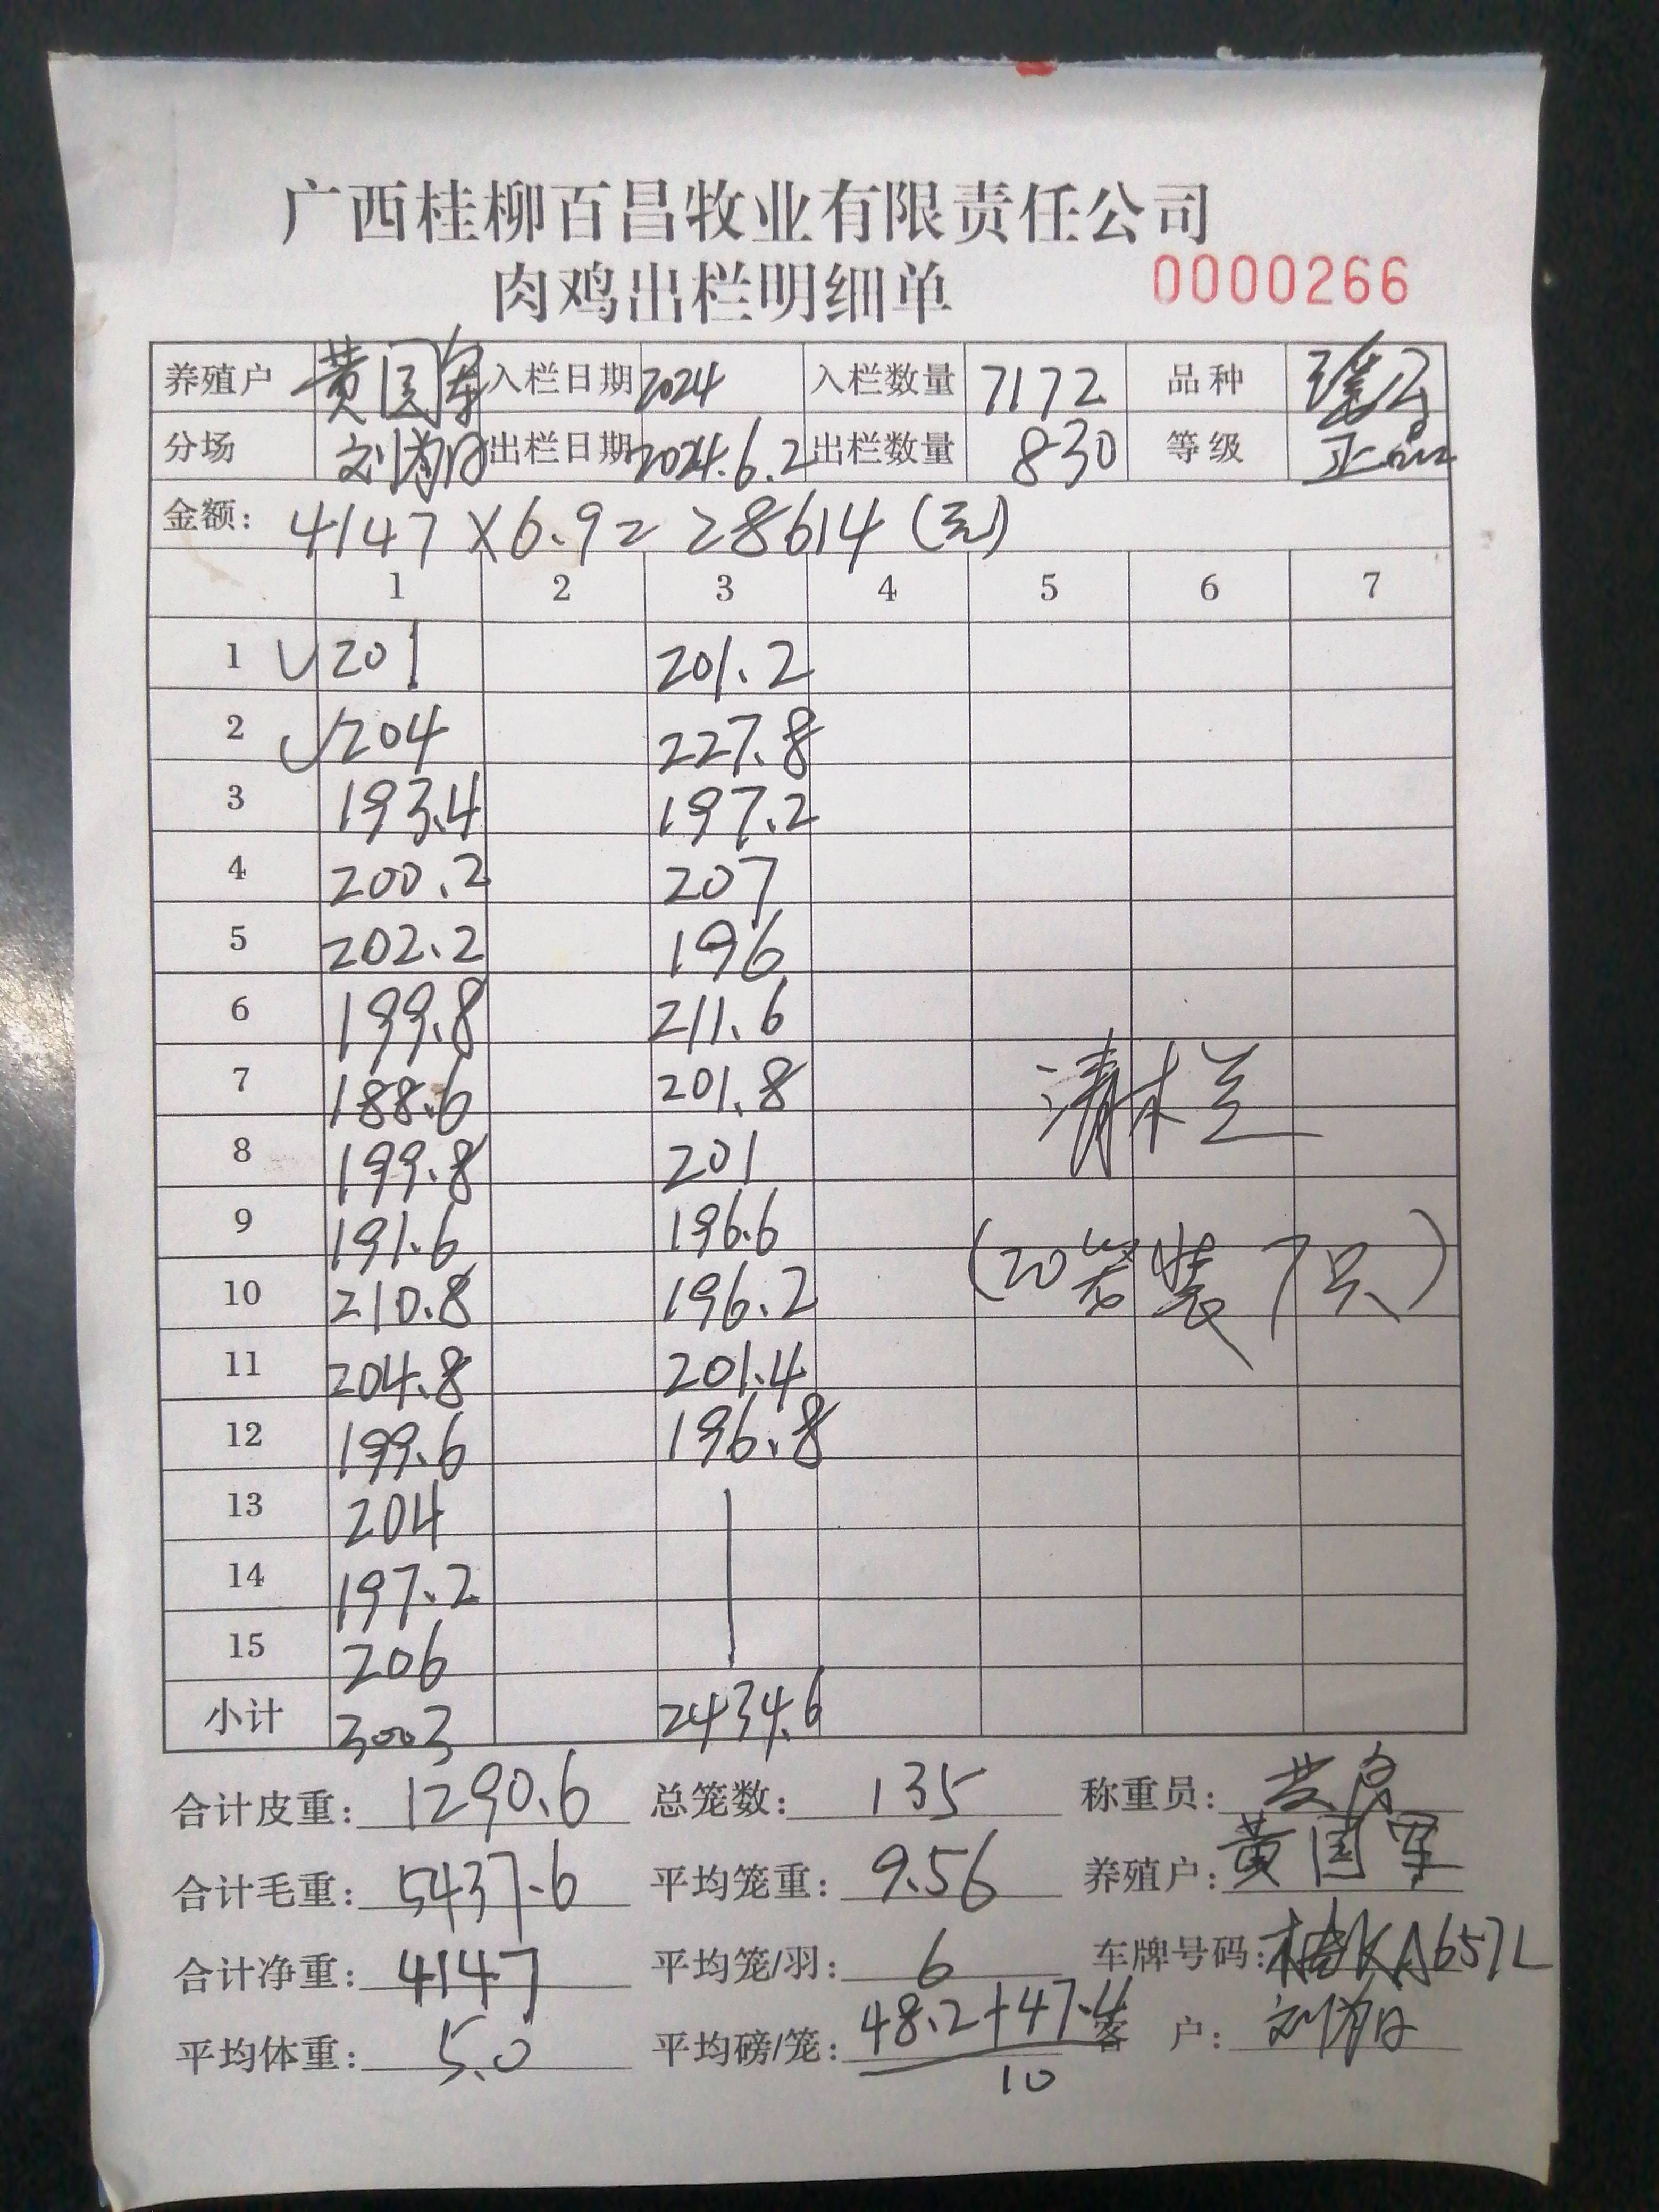 广西桂柳百昌牧业有限责任公司
肉鸡出栏明细单 0000266
养殖户 黄国军 入栏日期 2024 入栏数量 7172 品种
分场 刘 出栏日期 2024.6.2 出栏数量 830 等级 正品
金额: 4147×6.9=28614(元)
1 2 3 4 5 6 7
1 201 201.2
2 204 227.8
3 193.4 197.2
4 200.2 207
5 202.2 196
6 199.8 211.6
7 188.6 201.8
8 199.8 201
清木兰
9 191.6 196.6
10 210.8 196.2
(20笼装7只)
11 204.8 201.4
12 199.6 196.8
13 204
14 197.2
15 206
小计 3003 2434.6
合计皮重: 1290.6 总笼数: 135 称重员:
合计毛重: 5437.6 平均笼重: 9.56 养殖户: 黄国军
合计净重: 4147 平均笼/羽: 6 车牌号码: 桂KA657L
平均体重: 5.0 平均磅/笼: 48.2+47.4 客户: 刘
10